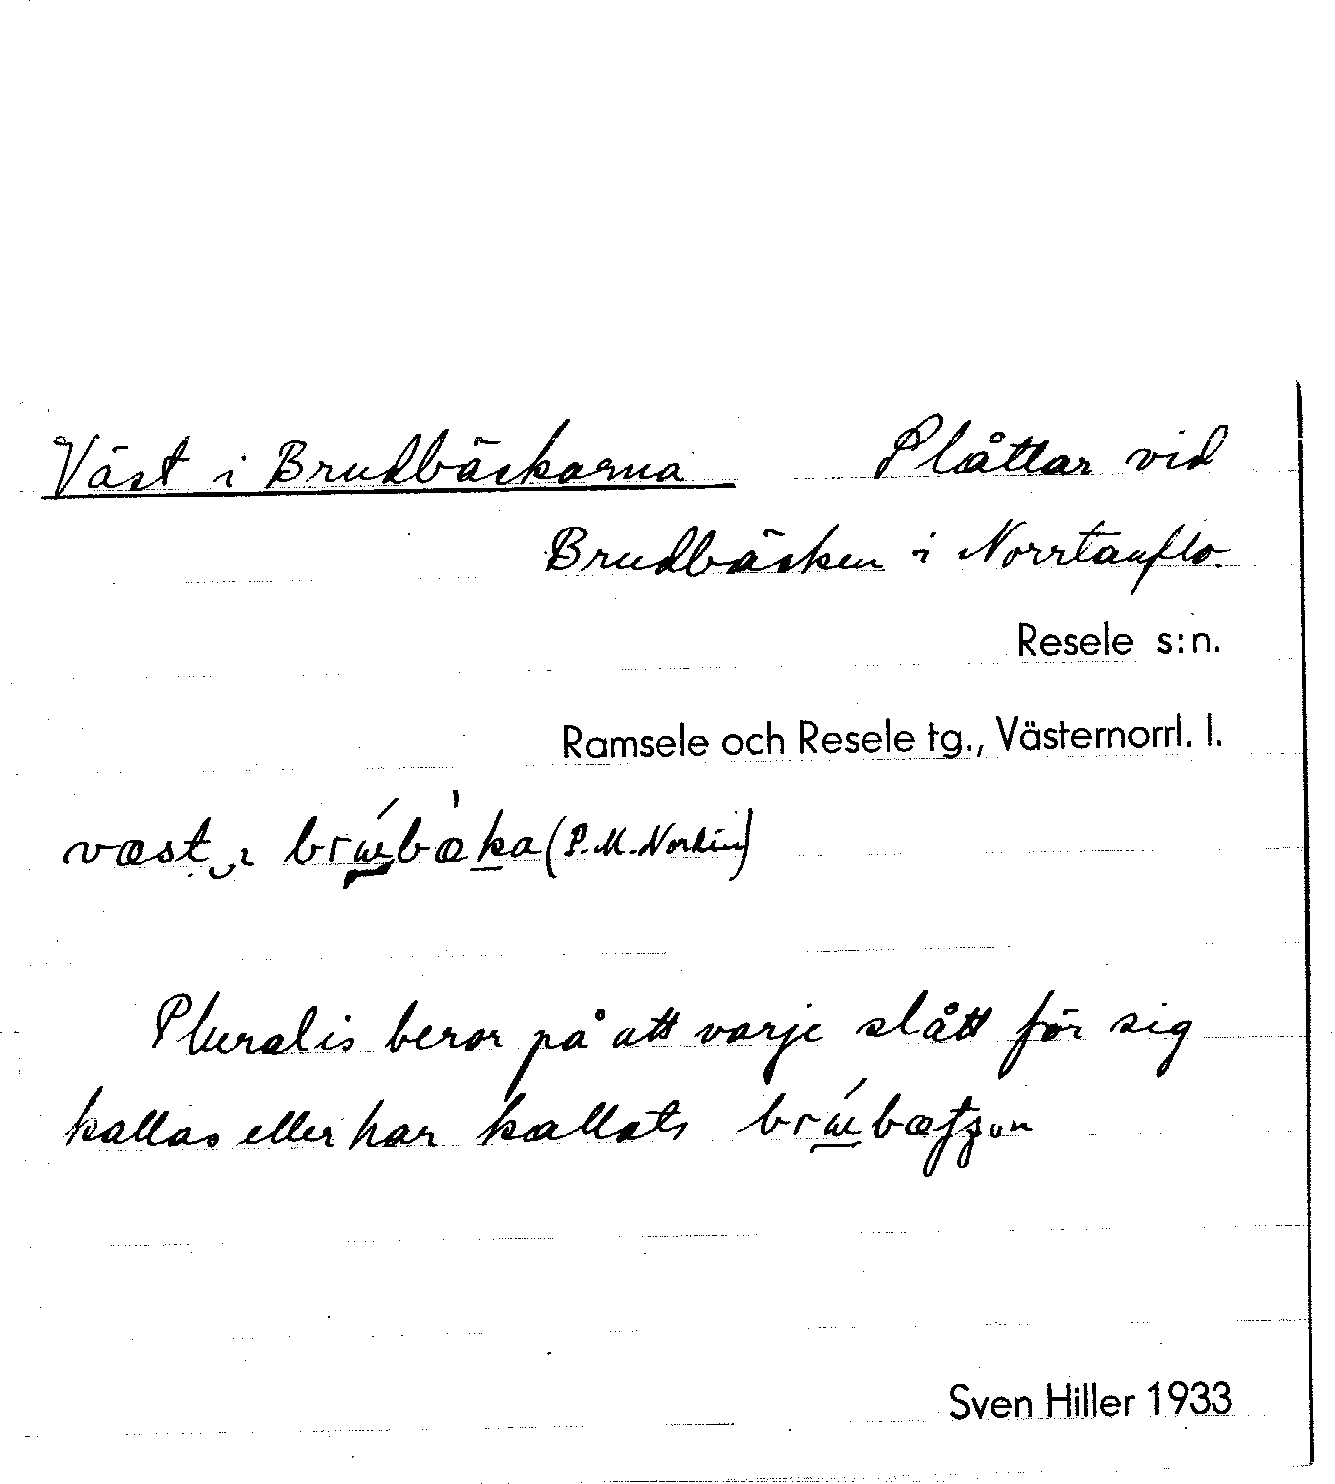 Väst i Brudbäckarna Slåttar vid
Brudbäcken i Norrtanflo.
Resele s:n.
Ramsele och Resele tg., Västernorrl. l.
væst ɩ (P. M. Nordin)
Pluralis beror på att varje slått för sig
kallas eller har kallats
Sven Hiller 1933